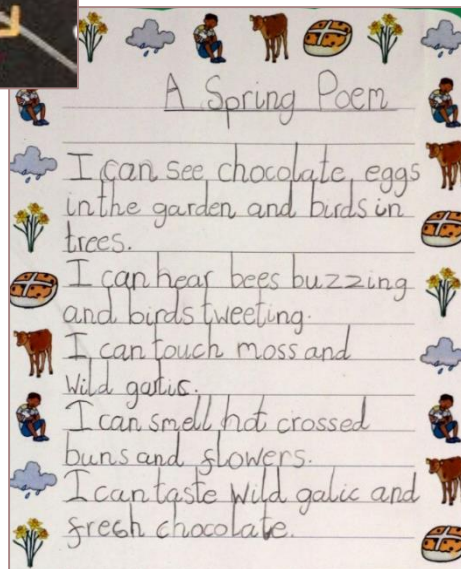 A Spring Poem
I can see chocolate eggs
in the garden and birds in
trees.
I can hear bees buzzing
and birds tweeting.
I can touch moss and
wild garlic.
I can smell hot crossed
buns and flowers.
I can taste wild galic and
fresh chocolate.